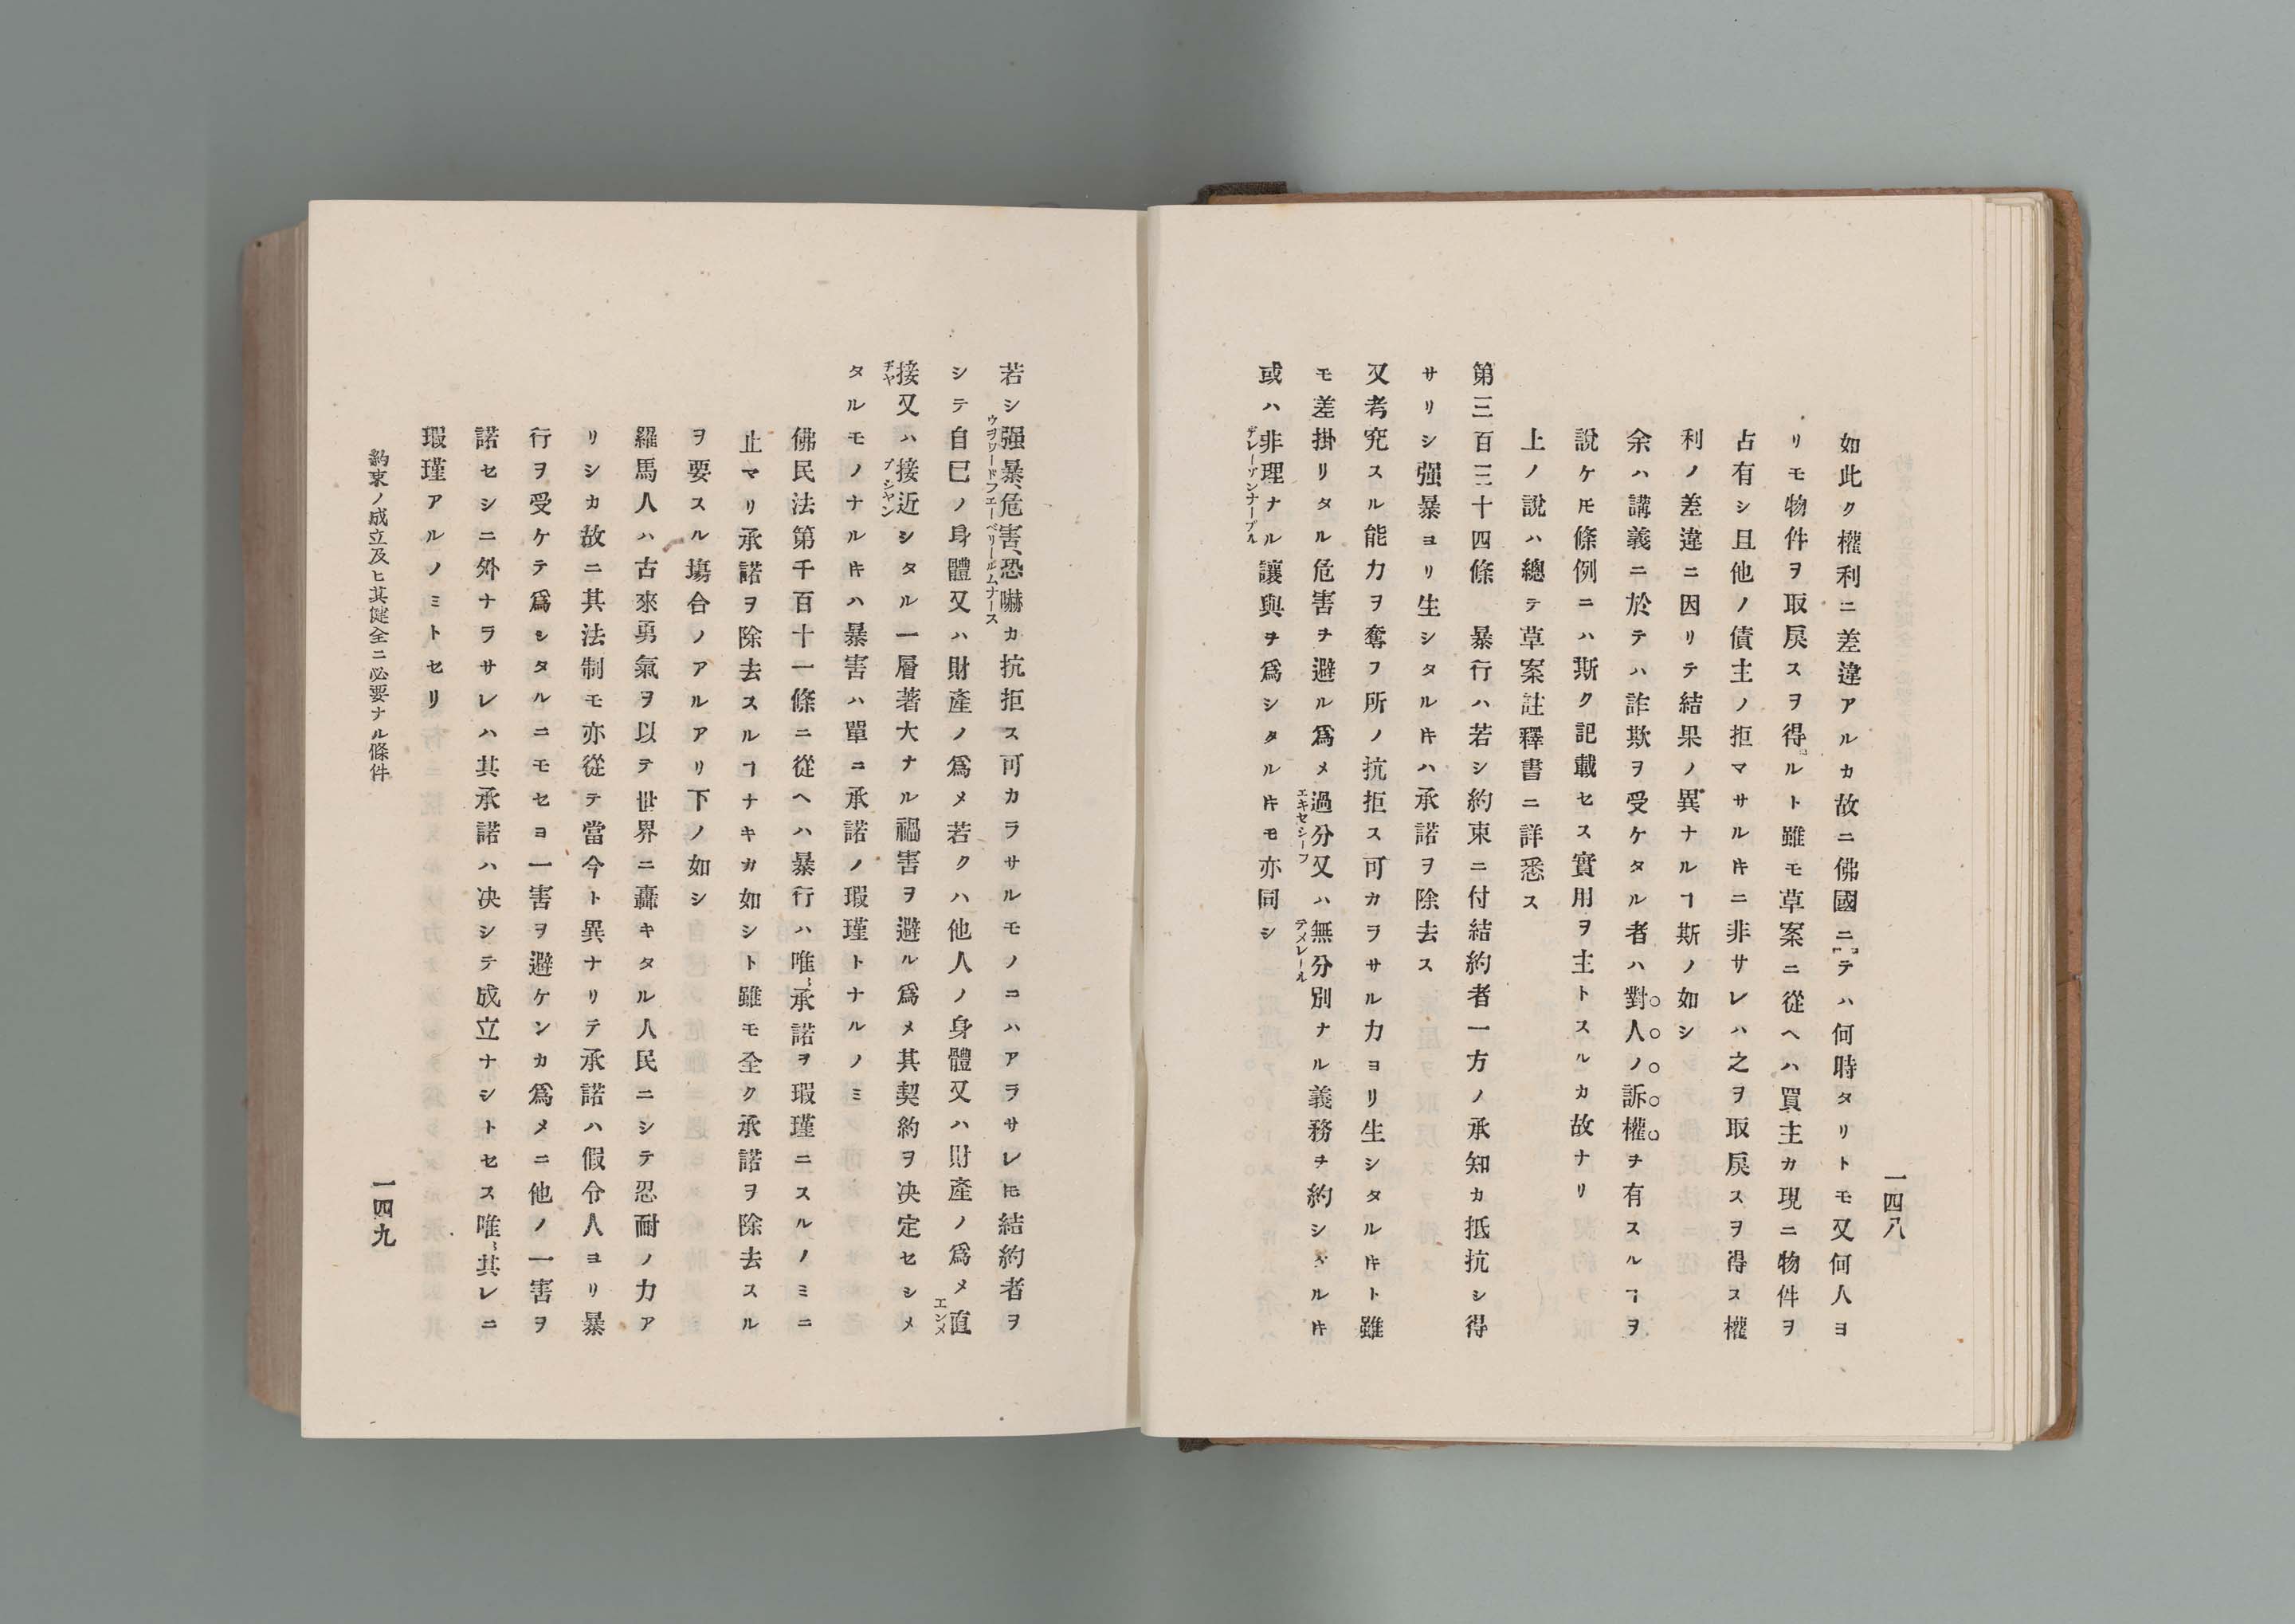 一四八
如此ク權利ニ差違アルカ故ニ佛國ニテハ何時タリトモ又何人ヨ
リモ物件ヲ取戾スヲ得ルト雖モ草案ニ從ヘハ買主カ現ニ物件ヲ
占有シ且他ノ債主ノ拒マサルキニ非サレハ之ヲ取戾スヲ得ス權
利ノ差違ニ因リテ結果ノ異ナルヿ斯ノ如シ
余ハ講義ニ於テハ詐欺ヲ受ケタル者ハ對人ノ訴權ヲ有スルヿヲ
說ケ𪜈條例ニハ斯ク記載セス實用ヲ主トスルカ故ナリ
上ノ說ハ總テ草案註釋書ニ詳悉ス
第三百三十四條 暴行ハ若シ約束ニ付結約者一方ノ承知カ抵抗シ得
サリシ强暴ヨリ生シタルキハ承諾ヲ除去ス
又考究スル能力ヲ奪フ所ノ抗拒ス可カラサル力ヨリ生シタルキト雖
モ差掛リタル危害ヲ避ル爲メ過分又ハ無分別ナル義務ヲ約シタルキ
エキセシーフ テメレール
或ハ非理ナル讓與ヲ爲シタルキモ亦同シ
デレーゾンナーブル
若シ强暴、危害、恐嚇カ抗拒ス可カラサルモノコハアラサレ𪜈結約者ヲ
ウヲワードフエーペリールムナース
シテ自已ノ身體又ハ財產ノ爲メ若クハ他人ノ身體又ハ財產ノ爲メ直
エンメ
接又ハ接近シタル一層著大ナル禍害ヲ避ル爲メ其契約ヲ决定セシメ
ヂヤ プシヤン
タルモノナルキハ暴害ハ單ニ承諾ノ瑕瑾トナルノミ
佛民法第千百十一條ニ從ヘハ暴行ハ唯〻承諾ヲ瑕瑾ニスルノミニ
止マリ承諾ヲ除去スルヿナキカ如シト雖モ全ク承諾ヲ除去スル
ヲ要スル塲合ノアルアリ下ノ如シ
羅馬人ハ古來勇氣ヲ以テ世界ニ轟キタル人民ニシテ忍耐ノ力ア
リシカ故ニ其法制モ亦從テ當今ト異ナリテ承諾ハ假令人ヨリ暴
行ヲ受ケテ爲シタルニモセヨ一害ヲ避ケンカ爲メニ他ノ一害ヲ
諾セシニ外ナラサレハ其承諾ハ决シテ成立ナシトセス唯〻其レニ
瑕瑾アルノミトセリ
約束ノ成立及ヒ其健全ニ必要ナル條件
一四九